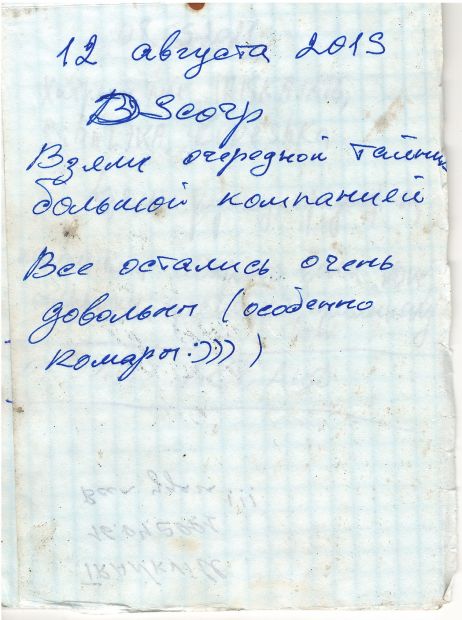 12 августа 2015
DScorp
Взяли очередной тайник
большой компанией
Все остались очень
довольны (особенно
комары :)))) )